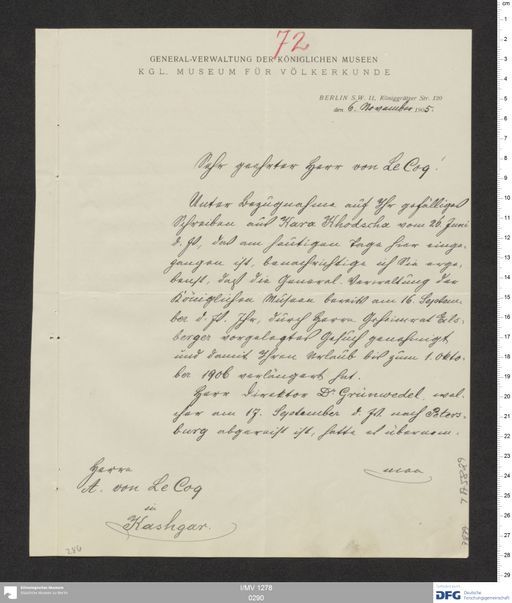 72
GENERAL-VERWALTUNG DER KÖNIGLICHEN MUSEEN
KGL. MUSEUM FÜR VÖLKERKUNDE
BERLIN S.W. 11, Königgrätzer Str. 120
den 6. November 1905.
Sehr geehrter Herr von Le Coq!
Unter Bezugnahme auf Ihr gefälliges
Schreiben aus Kara Khodscha vom 26. Juni
d. Js, das am heutigen Tage hier einge-
gangen ist, benachrichtige ich Sie erge-
benst, daß die General-Verwaltung der
Königlichen Museen bereits am 16. Septem-
ber d. Js. Ihr, durch Herrn Geheimrat Els-
berger vorgelegtes Gesuch genehmigt
und damit Ihren Urlaub bis zum 1. Okto-
ber 1906 verlängert hat.
Herr Direktor Dr Grünwedel, wel-
cher am 17. September d. Js. nach Peters-
burg abgereist ist, hatte es übernom-
men
Herrn
A. von Le Coq
in
Kashgar.
286
I/MV 1278
0290
Ethnologisches Museum
Staatliche Museen zu Berlin
DFG Deutsche
Forschungsgemeinschaft